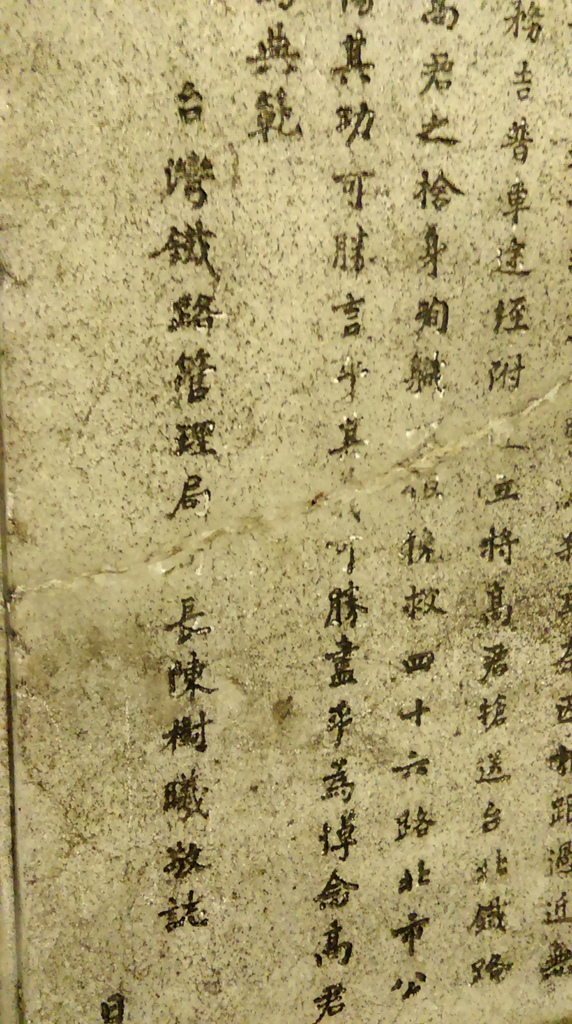 過近無
務吉普車途經附
將高君搶送台北鐵路
高君之捨身殉職
挽救四十六路北市公
其功可勝言乎其
可勝盡乎為悼念高君
典範
台灣鐵路管理局
長陳樹曦敬誌
日